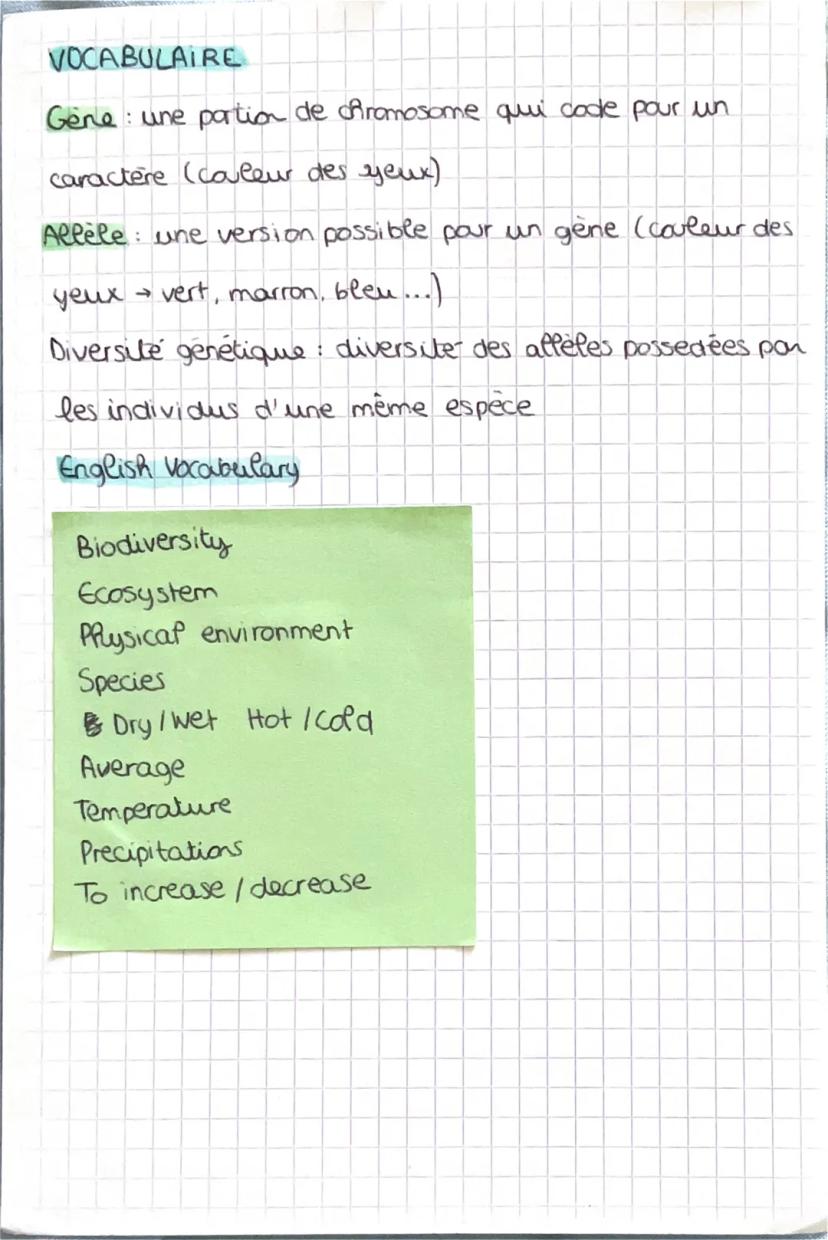 VOCABULAIRE
Gène : une portion de chromosome qui code pour un
caractère (couleur des yeux)
Allèle : une version possible pour un gène (couleur des
yeux → vert, marron, bleu ...)
Diversité génétique : diversité des allèles possedées par
les individus d'une même espèce
English Vocabulary
Biodiversity
Ecosystem
Physical environment
Species
Dry / Wet Hot / Cold
Average
Temperature
Precipitations
To increase / decrease